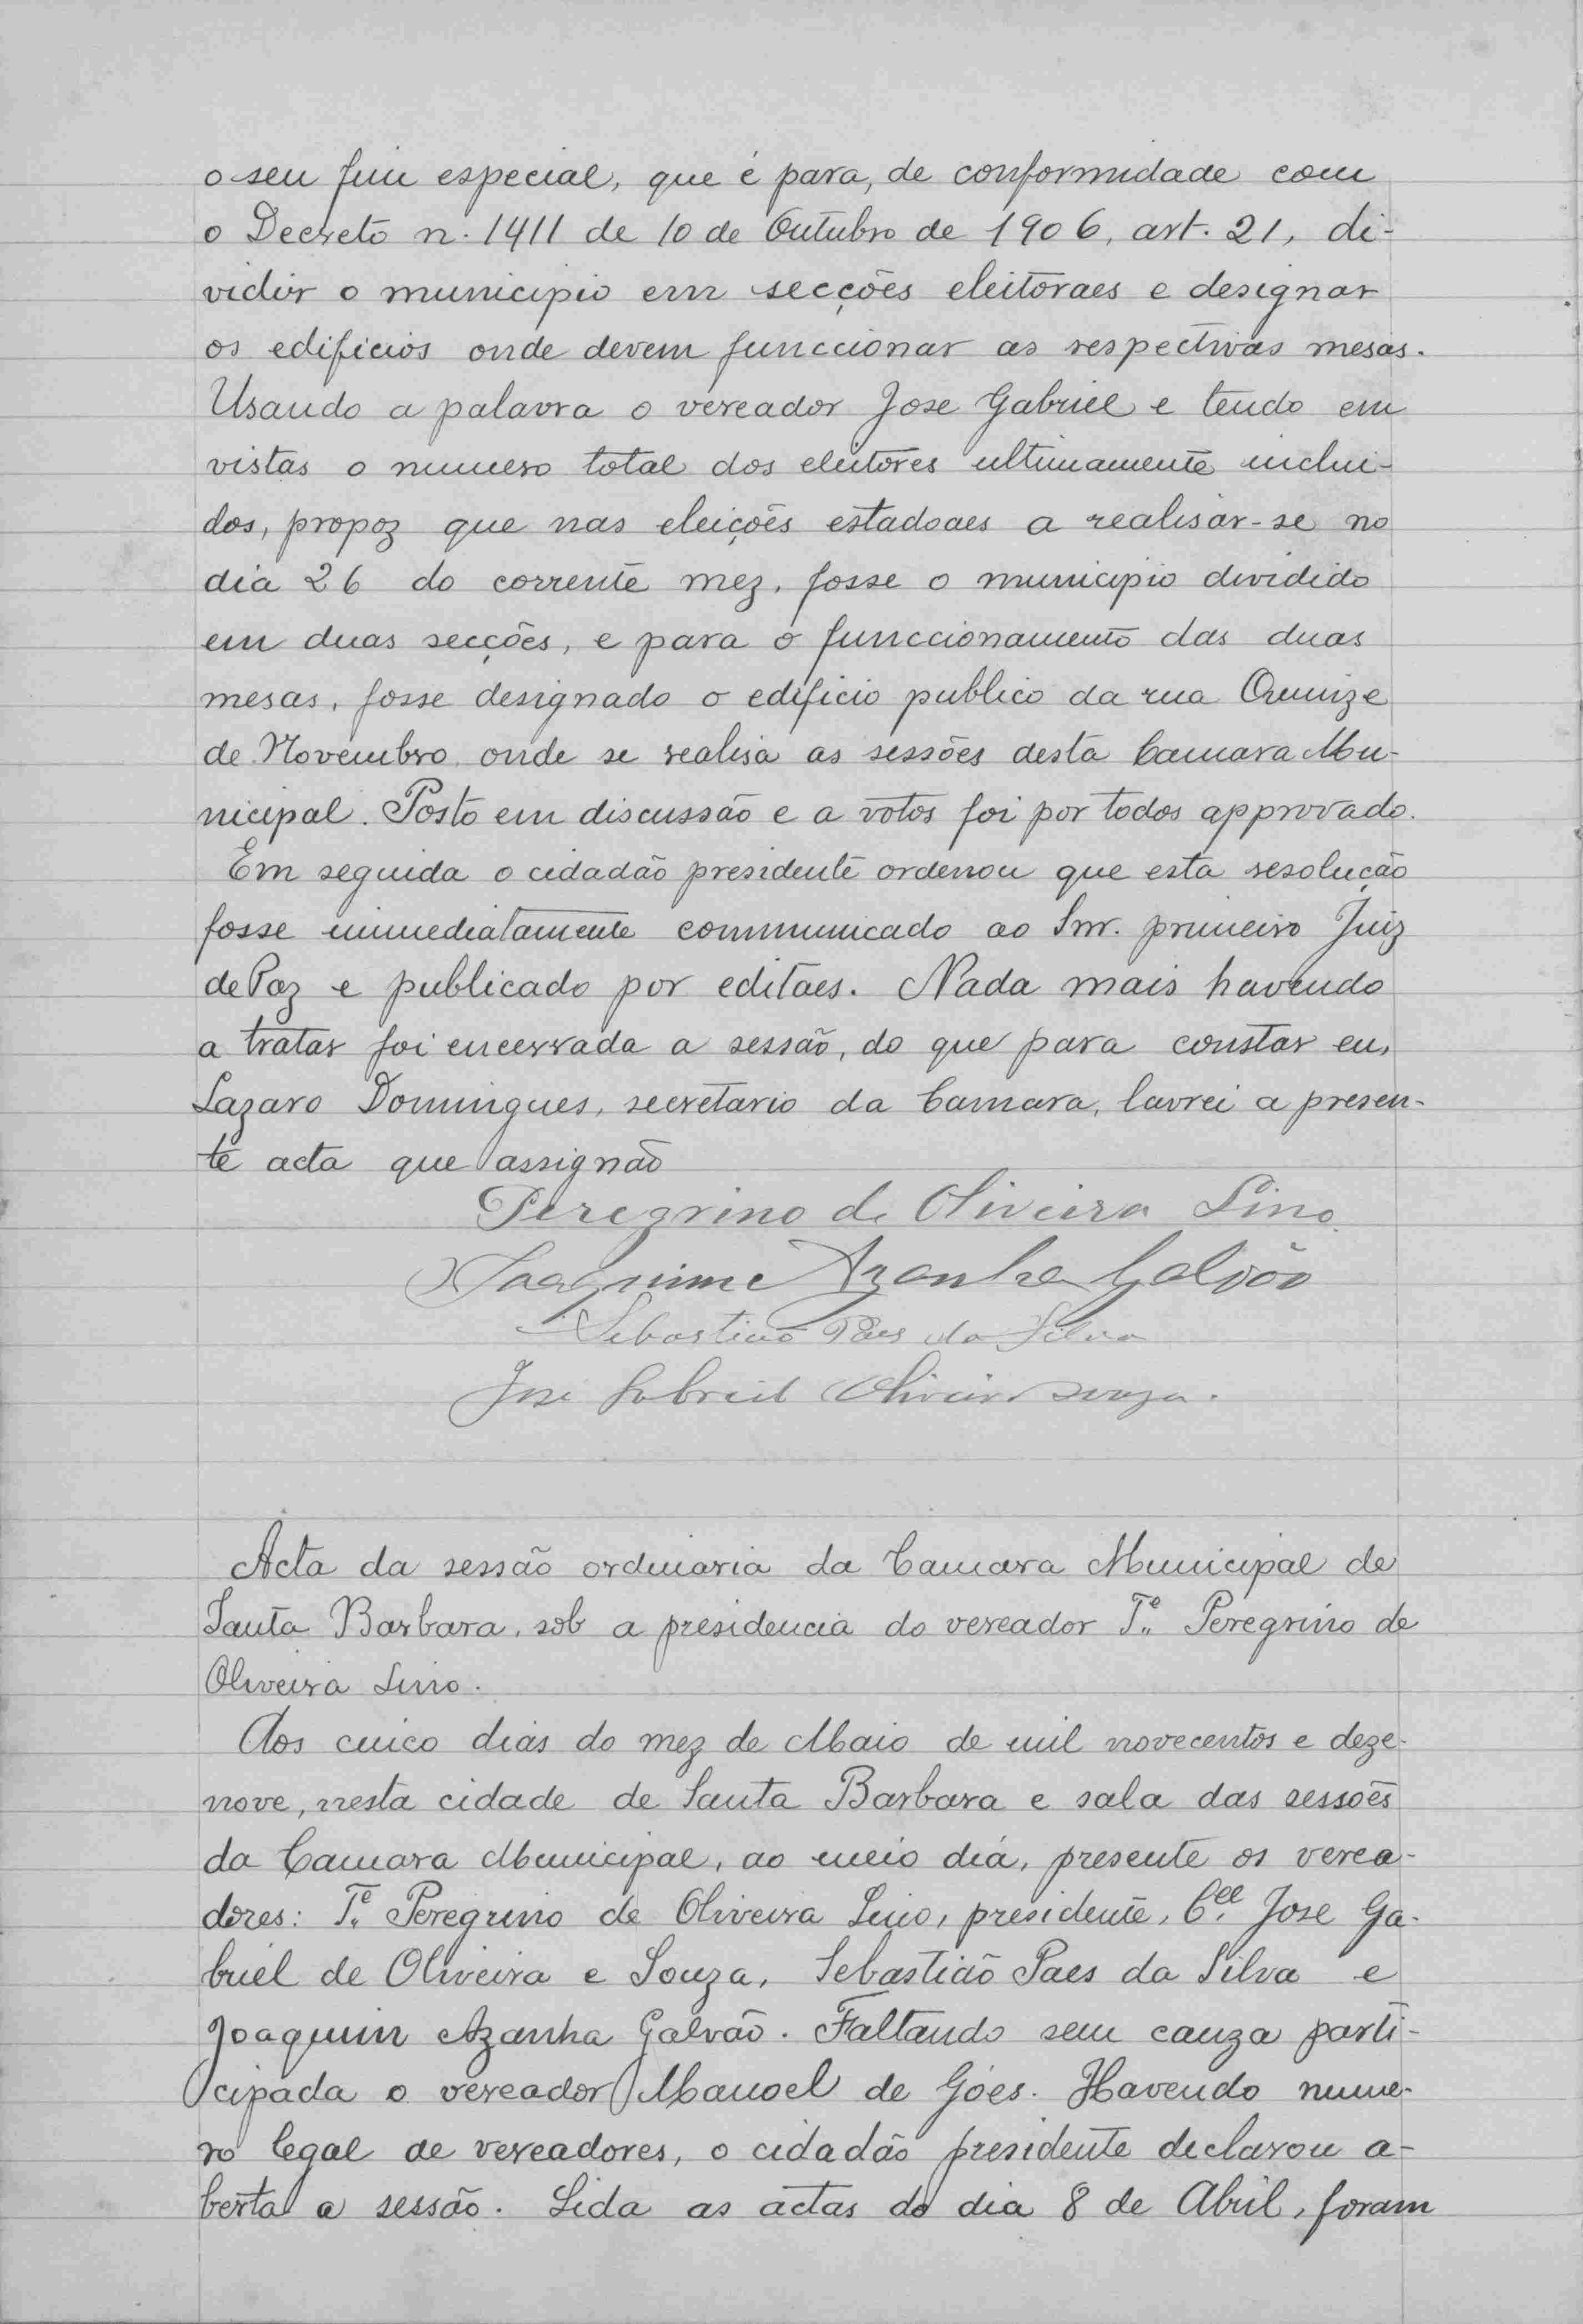 o seu fim especial, que é para, de conformidade com
o Decreto n. 1411 de 10 de Outubro de 1906, art. 21, di-
vidir o municipio em secções eleitoraes e designar
os edificios onde devem funccionar as respectivas mesas.
Usando a palavra o vereador Jose Gabriel e tendo em
vistas o numero total dos eleitores ultimamente inclui-
dos, propoz que nas eleições estadoaes a realisar-se no
dia 26 do corrente mez, fosse o municipio dividido
em duas secções, e para o funccionamento das duas
mesas, fosse designado o edificio publico da rua Quinze
de Novembro onde se realisa as sessões desta Camara Mu-
nicipal. Posto em discussão e a votos foi por todos approvado.
Em seguida o cidadão presidente ordenou que esta resolução
fosse immediatamente communicado ao Snr. primeiro Juiz
de Paz e publicado por editaes. Nada mais havendo
a tratar foi encerrada a sessão, do que para constar eu,
Lazaro Domingues, secretario da Camara, lavrei a presen-
te acta que assignão
Peregrino de Oliveira Lino
Joaquim Azanha Galvão
Sebastião Paes da Silva
Jose Gabriel Oliveira Souza.
Acta da sessão ordinaria da Camara Municipal de
Santa Barbara, sob a presidencia do vereador Te. Peregrino de
Oliveira Lino.
Aos cinco dias do mez de Maio de mil novecentos e deze-
nove, nesta cidade de Santa Barbara e sala das sessões
da Camara Municipal, ao meio dia, presente os verea-
dores: Te. Peregrino de Oliveira Lino, presidente, Cel. Jose Ga-
briel de Oliveira e Souza, Sebastião Paes da Silva e
Joaquim Azanha Galvão. Faltando sem cauza parti-
cipada o vereador Manoel de Góes. Havendo nume-
ro legal de vereadores, o cidadão presidente declarou a-
berta a sessão. Lida as actas do dia 8 de Abril, foram